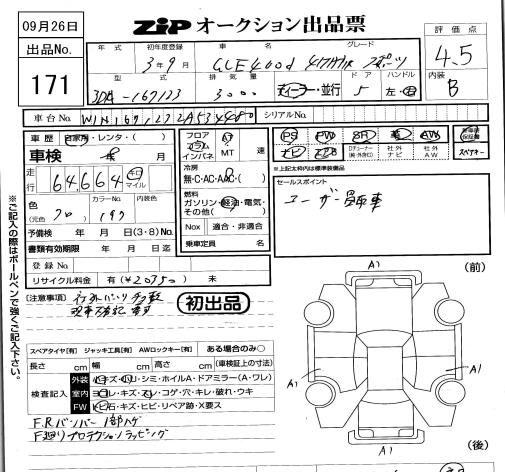 09月26日
ZIP オークション出品票
出品No.
171
評価点
4.5
内装
B
年式 初年度登録 車名 グレード
3年9月 GLE400d 4マチック スポーツ
型式 排気量 ドア ハンドル
3DA-167123 3000 ディーラー・並行 5 左・右
車台No. W1N1671232A534480 シリアルNo.
車歴 自家用・レンタ・( )
車検 年 月
走行 64,664 キロ マイル
フロア コラム インパネ AT MT 速
冷房 無・C・AC・AAC( )
燃料 ガソリン・軽油・電気・その他( )
Nox 適合・非適合
乗車定員 名
色 (元色) クロ カラーNo. 197 内装色
予備検 年 月 日(3・8) No.
書類有効期限 年 月 日迄
登録No.
リサイクル料金 有(¥20350) 無
PS PW SR AW 保証書
ナビ
社外 ナビ 社外 AW スペアキー
※上記太枠内は標準装備品
セールスポイント
ユーザー買取車
[注意事項]
初出品
スペアタイヤ[有] ジャッキ工具[有] AWロックキー[有] ある場合のみ○
長さ cm 幅 cm 高さ cm (車検証上の寸法)
検査記入
外装 キズ・シミ・ホイルA・ドアミラー(A・ワレ)
室内 ヨゴレ・キズ・スレ・コゲ・穴・キレ・破れ・ウキ
FW 飛石・キズ・ヒビ・リペア跡・X要ス
F.Rバンパー1部ハゲ
F廻りプロテクションラッピング
※ご記入の際はボールペンで強くご記入下さい。
A1 (前)
A1 A1
A1 (後)